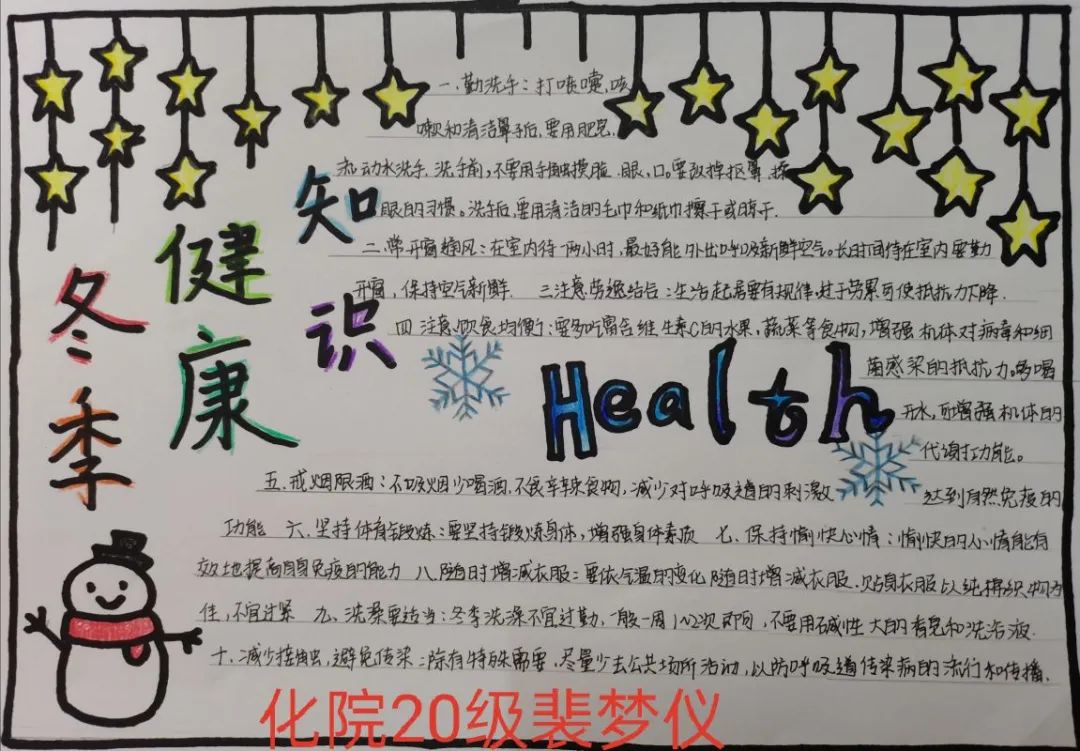 冬季
健康
知识
一.勤洗手：打喷嚏,咳
嗽和清洁鼻子后,要用肥皂.
流动水洗手.洗手前,不要用手触摸脸.眼,口.要改掉抠鼻.揉
眼的习惯。洗手后,要用清洁的毛巾和纸巾擦干或晾干.
二.常开窗通风：在室内待一两小时,最好能外出呼吸新鲜空气。长时间待在室内要勤
开窗，保持空气新鲜. 三注意劳逸结合：生活起居要有规律.过于劳累可使抵抗力下降.
四 注意饮食均衡：要多吃富含维生素C的水果，蔬菜等食物，增强机体对病毒和细
菌感染的抵抗力。多喝
Health
开水,可增强机体的
代谢功能。
五.戒烟限酒：不吸烟少喝酒,不食辛辣食物,减少对呼吸道的刺激
达到自然免疫的
功能 六.坚持体育锻炼：要坚持锻炼身体，增强身体素质 七、保持愉快心情：愉快的心情能有
效地提高自身免疫的能力 八.随时增减衣服：要依气温的变化随时增减衣服.贴身衣服以纯棉织物为
佳，不宜过紧 九、洗澡要适当：冬季洗澡不宜过勤，一般一周1~2次即可，不要用碱性大的香皂和洗浴液.
十、减少接触,避免传染：除有特殊需要.尽量少去公共场所活动，以防呼吸道传染病的流行和传播.
化院20级裴梦仪